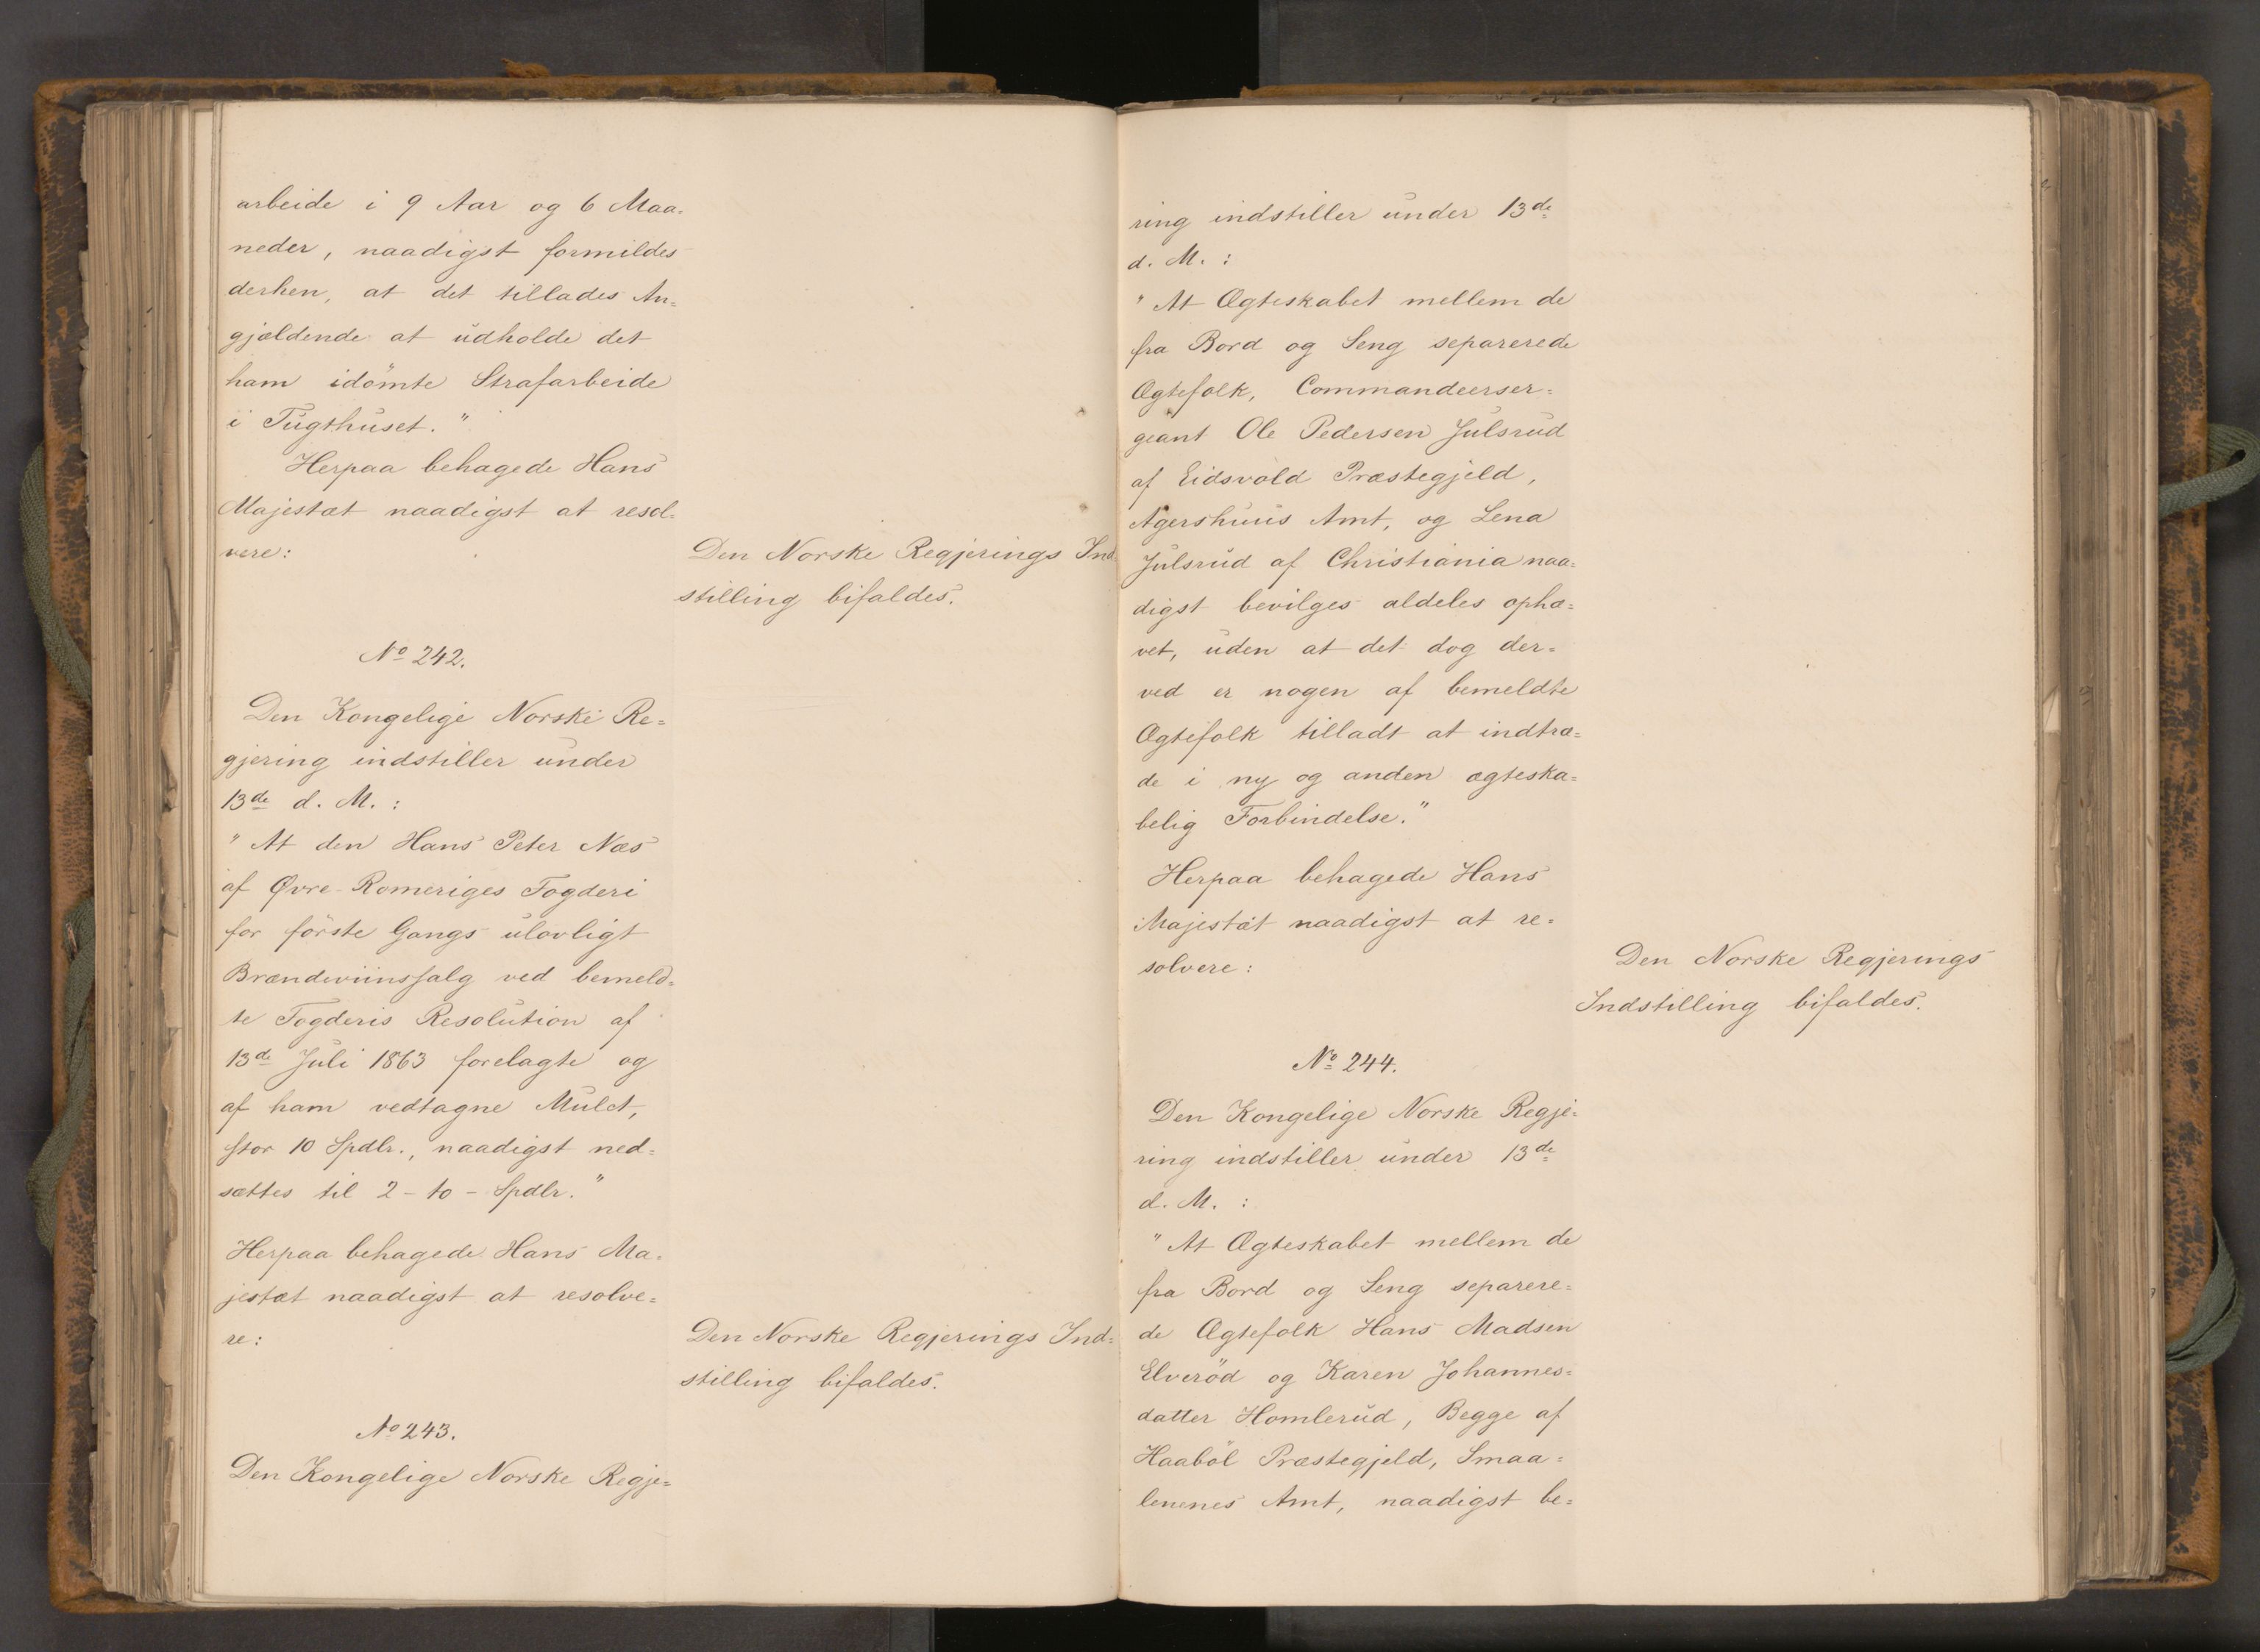 arbeide i 9 Aar og 6 Maa-
neder, naadigst formildes
derhen, at det tillades An-
gjældende at udholde det
ham idömte Strafarbeide
i Tugthuset."
Herpaa behagede Hans
Majestæt naadigst at resol-
vere:
Den Norske Regjerings Ind-
stilling bifaldes.
No 242.
Den Kongelige Norske Re-
gjering indstiller under
13de d. M. :
"At den Hans Peter Næs
af Øvre Romeriges Fogderi
for förste Gangs ulovligt
Brændeviinssalg ved bemeld-
te Fogderis Resolution af
13de Juli 1863 forelagte og
af ham vedtagne Mulct,
stor 10 Spdlr., naadigst ned-
sættes til 2 - to - Spdlr."
Herpaa behagede Hans Ma-
jestæt naadigst at resolve-
re:
Den Norske Regjerings Ind-
stilling bifaldes.
No 243.
Den Kongelige Norske Regje-
ring indstiller under 13de
d. M. :
"At Ægteskabet mellem de
fra Bord og Seng separerede
Ægtefolk, Commandeerser-
geant Ole Pedersen Julsrud
af Eidsvold Præstegjeld,
Agershuus Amt, og Lena
Julsrud af Christiania naa-
digst bevilges aldeles ophæ-
vet, uden at det dog der-
ved er nogen af bemeldte
Ægtefolk tilladt at indtræ-
de i ny og anden ægteska-
belig Forbindelse."
Herpaa behagede Hans
Majestæt naadigst at re-
solvere:
Den Norske Regjerings
Indstilling bifaldes.
No 244.
Den Kongelige Norske Regje-
ring indstiller under 13de
d. M. :
"At Ægteskabet mellem de
fra Bord og Seng separere-
de Ægtefolk Hans Madsen
Elveröd og Karen Johannes-
datter Homlerud, Begge af
Haaböl Præstegjeld, Smaa-
lenenes Amt, naadigst be-